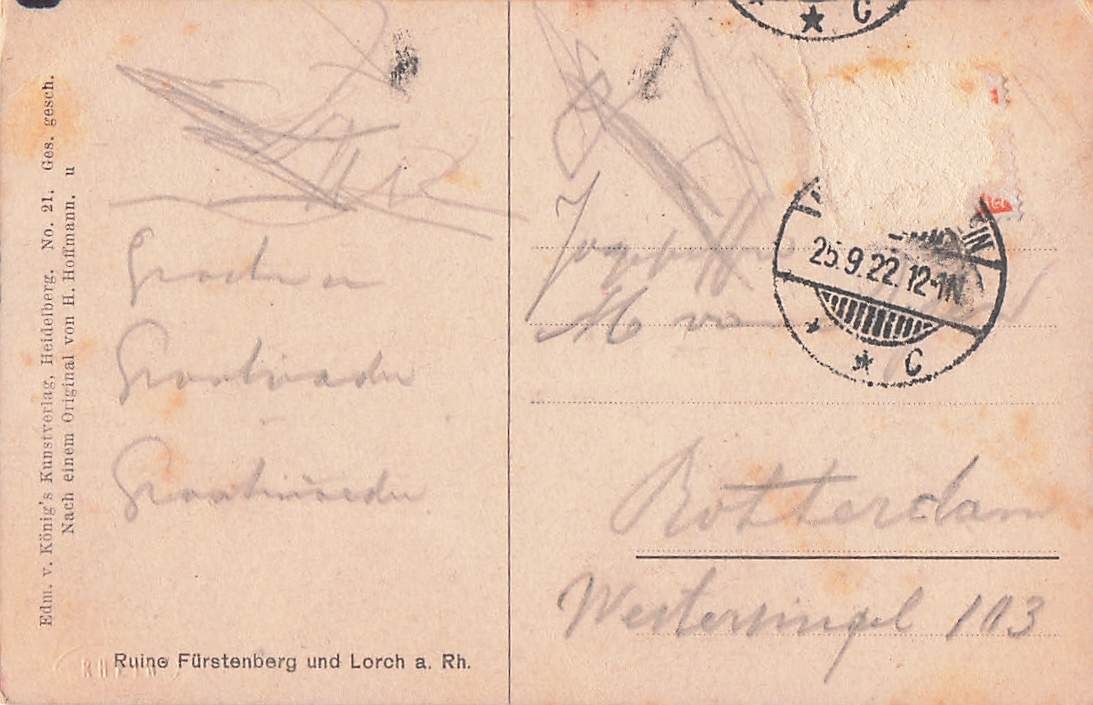 Edm. v. König's Kunstverlag, Heidelberg. No. 21. Ges. gesch.
Nach einem Original von H. Hoffmann. u
Groeten
Grootvader
Grootmoeder
C
M van
25.9.22.12-1N
C
Rotterdam
Westersingel 103
Ruine Fürstenberg und Lorch a. Rh.